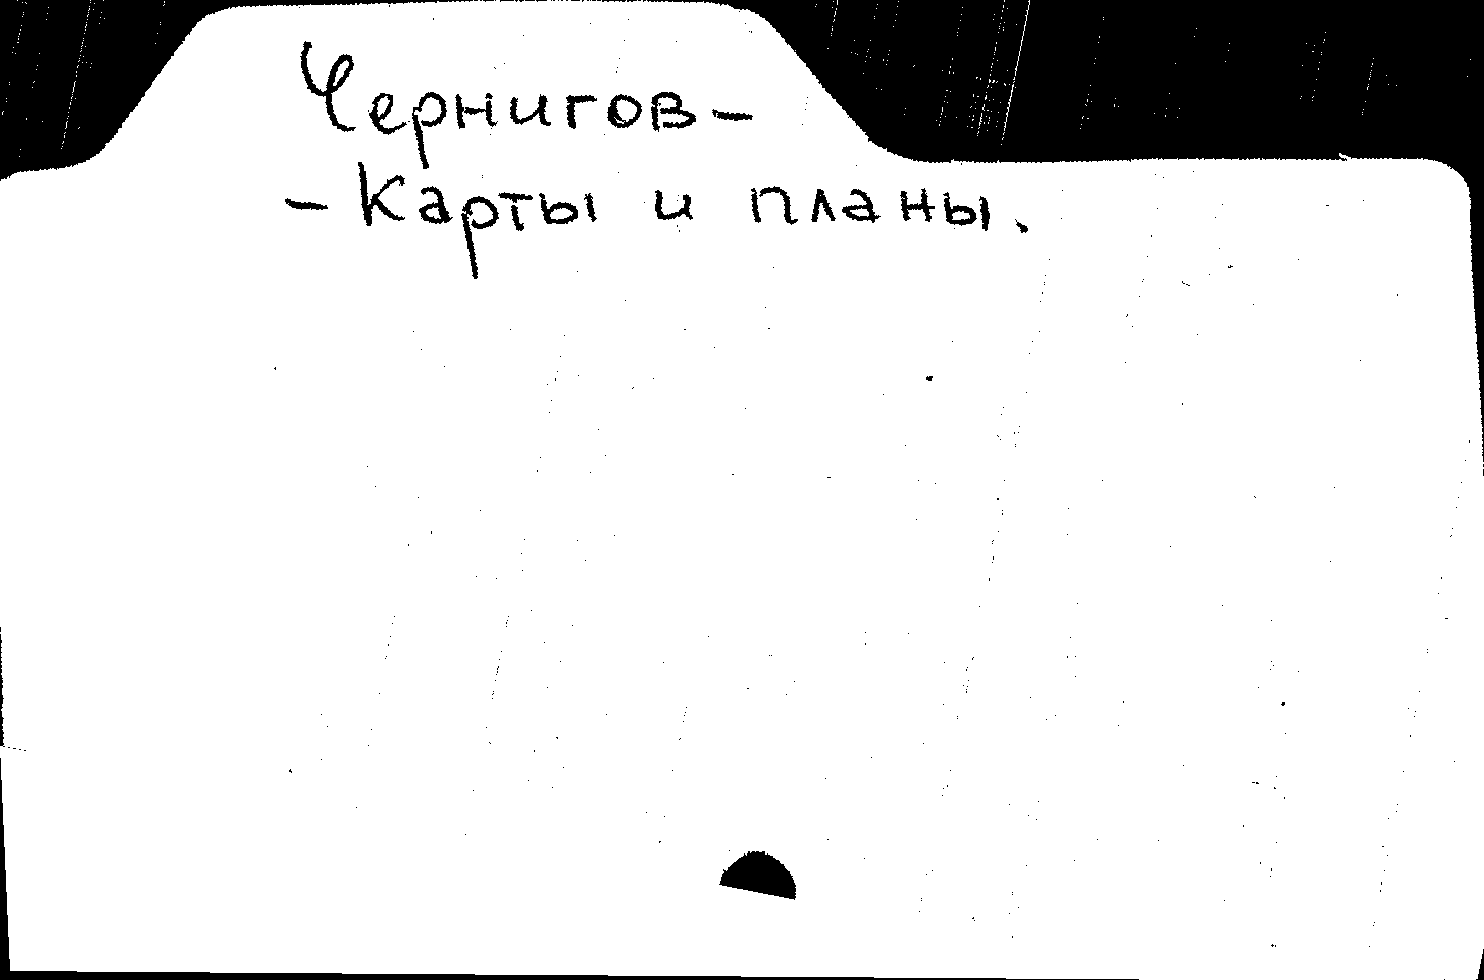 Чернигов-
- Карты и планы.